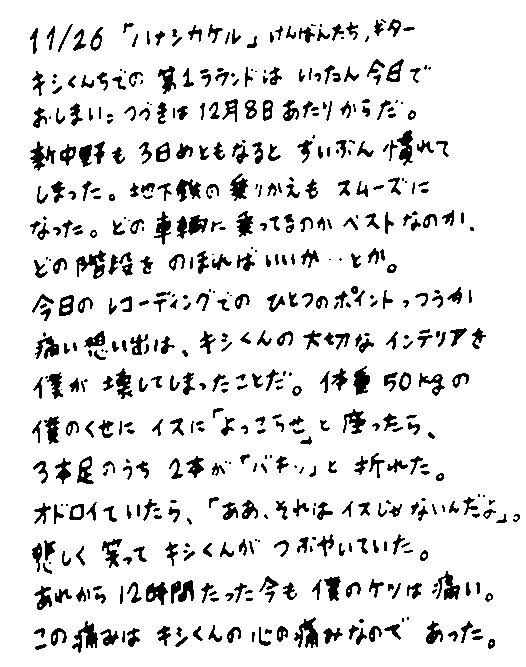 11/26 「ハナシカケル」けんばんたち,ギター
キシくんちでの 第1ラウンドは いったん今日で
おしまい。つづきは12月8日あたりからだ。
新中野も 3日めともなると ずいぶん 慣れて
しまった。地下鉄の乗りかえも スムーズに
なった。どの車輌に乗ってるのがベストなのか、
どの階段を のぼればいいか…とか。
今日の レコーディングでの ひとつのポイントっつうか
痛い想い出は、キシくんの大切な インテリアを
僕が 壊してしまったことだ。体重50kgの
僕のくせに イスに「よっこらせ」と 座ったら、
3本足のうち 2本が「バキッ」と 折れた。
オドロイていたら、「ああ、それは イスじゃないんだよ」。
悲しく 笑って キシくんが つぶやいていた。
あれから 12時間たった今も 僕のケツは 痛い。
この痛みは キシくんの心の痛みなので あった。